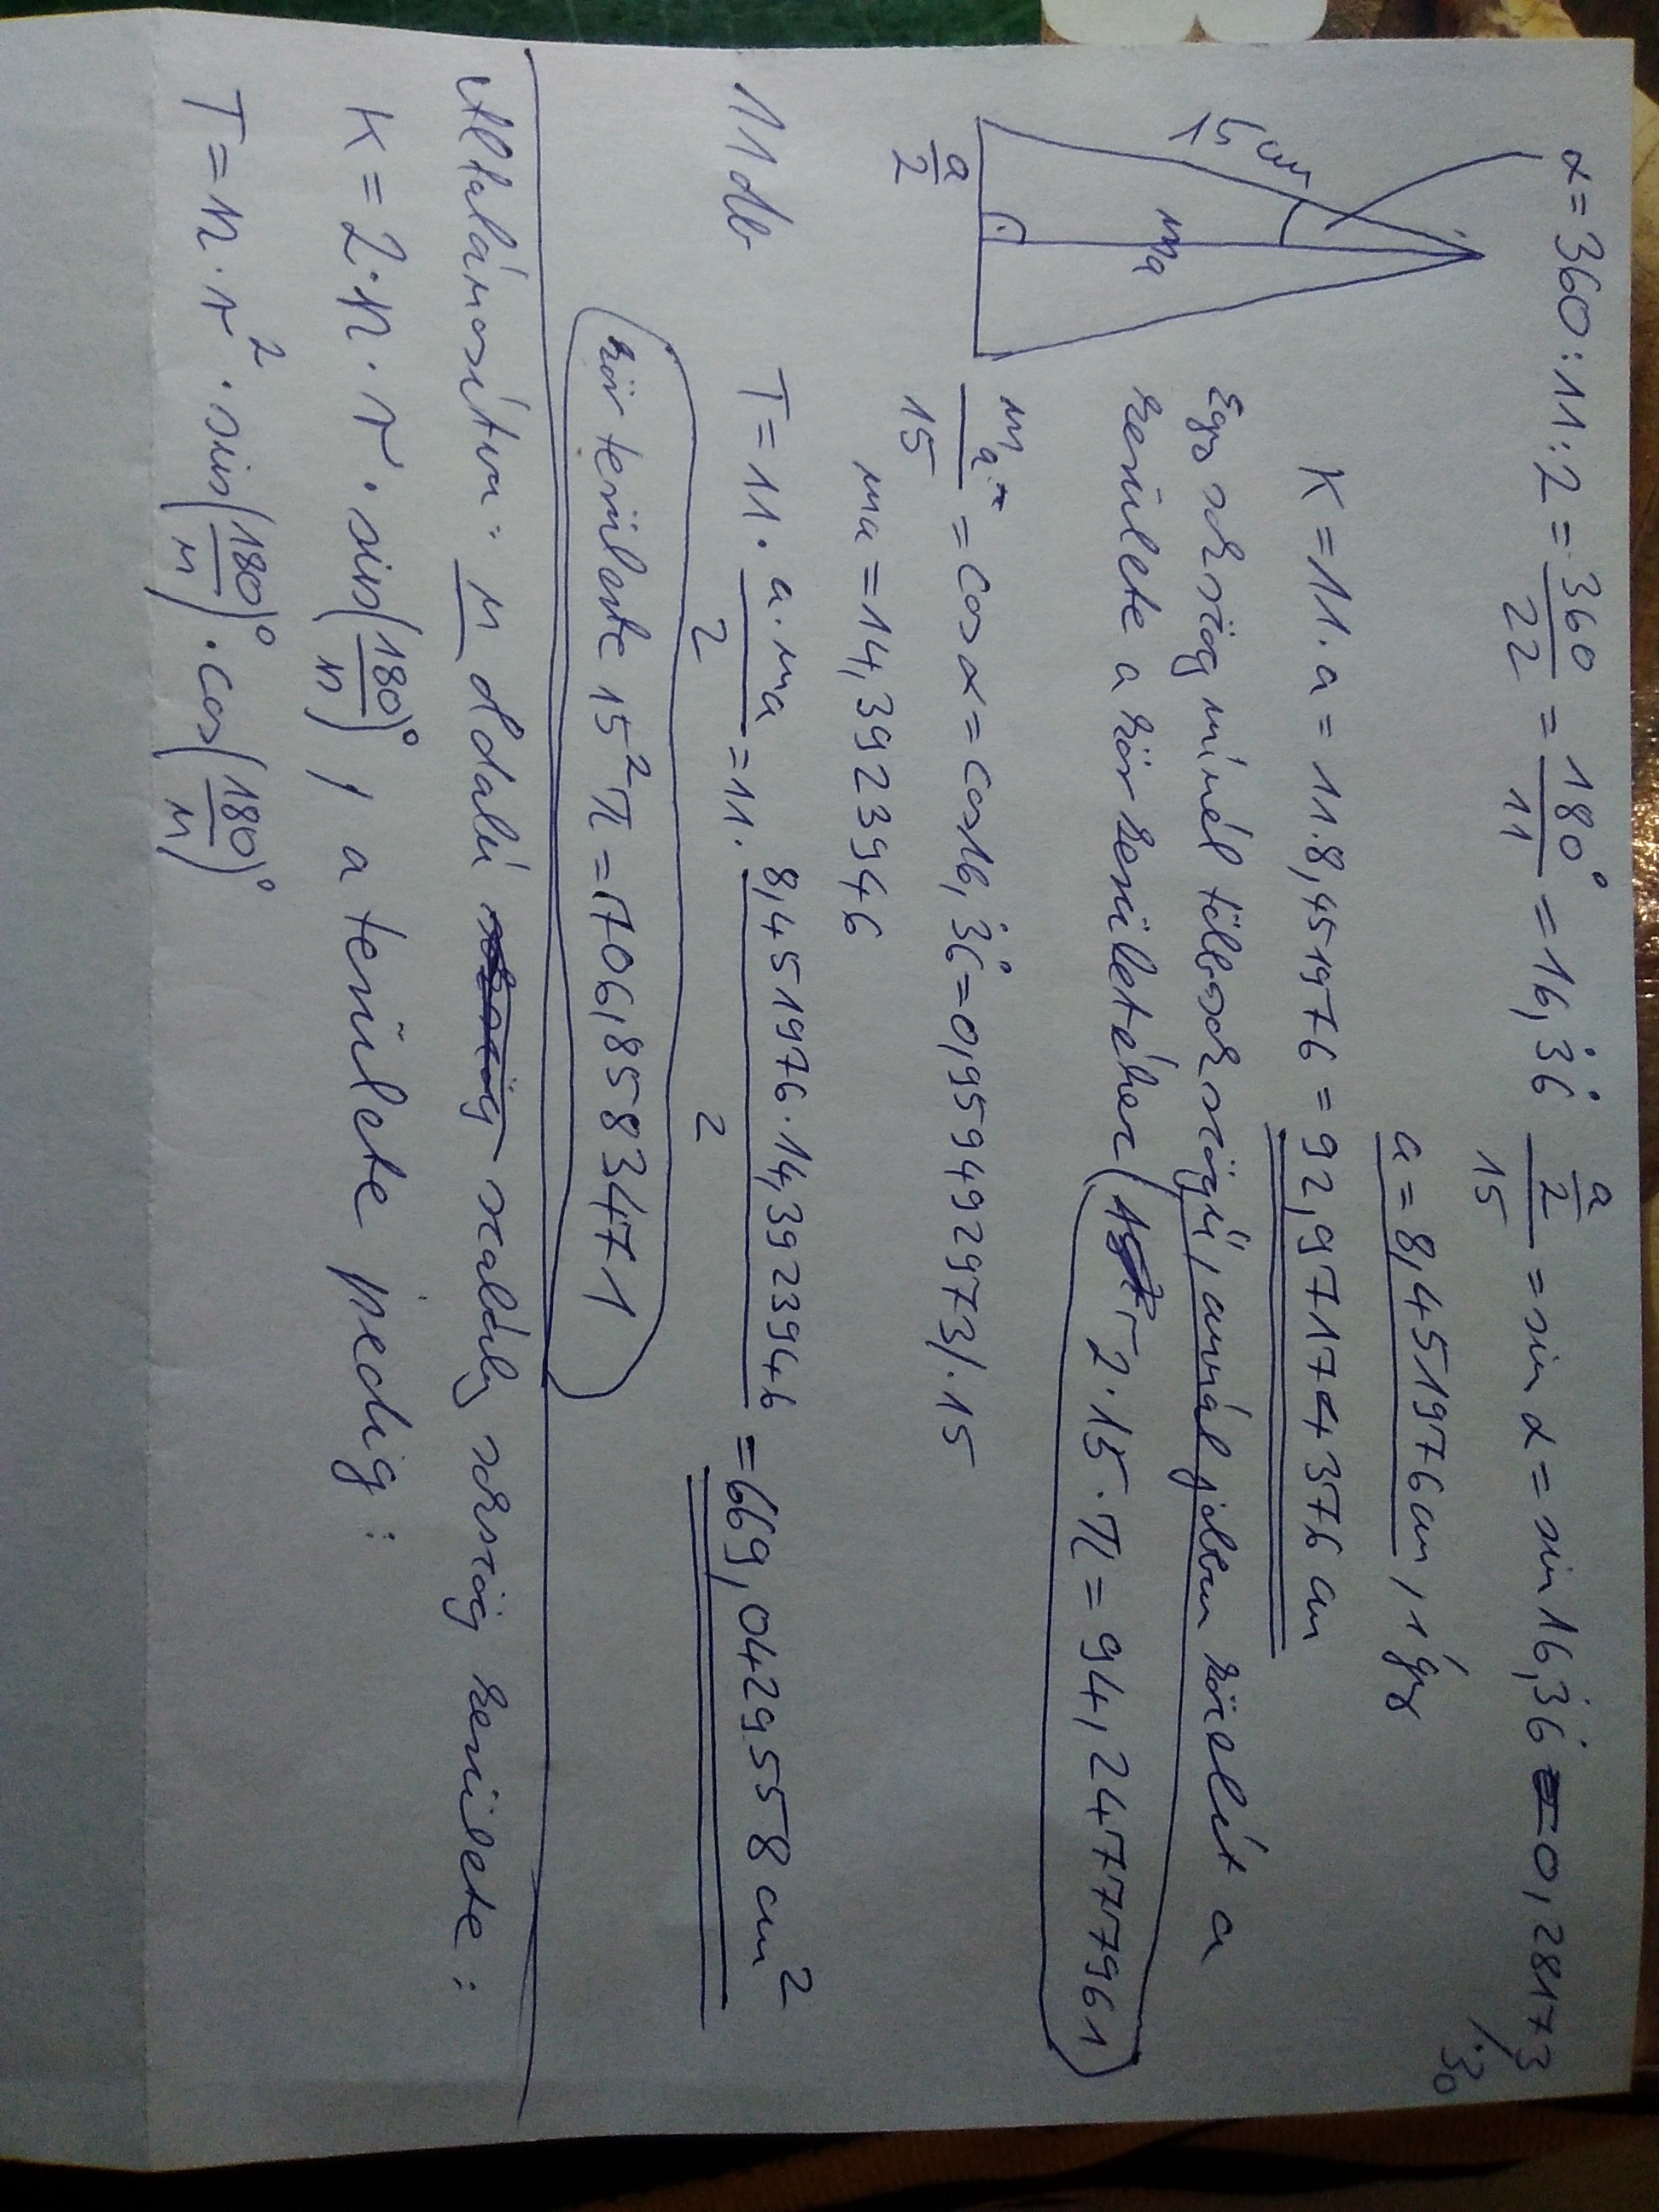 α = 360 : 11 : 2 = 360/22 = 180°/11 = 16,3̇6̇ (a/2)/15 = sin α = sin 16,3̇6̇ = 0,28173 /·30
a = 8,451976 cm, 1 ágú
K = 11 · a = 11 · 8,451976 = 92,97174376 cm
Egy szög minél többszszögű, annál jobban közelít a
kerülete a kör kerületéhez (2 · 15 · π = 94,24777961)
15 cm
α
ma
a/2
ma/15 = cos α = cos 16,3̇6̇° = 0,959492973 /·15
ma = 14,3923946
11 db T = 11 · (a · ma)/2 = 11 · (8,451976 · 14,3923946)/2 = 669,0429558 cm²
kör területe 15²π = 706,8583471
Általánosítva: n oldalú szabály sokszög kerülete:
K = 2 · n · r · sin(180/n)°, a területe pedig:
T = n · r² · sin(180/n)° · cos(180/n)°